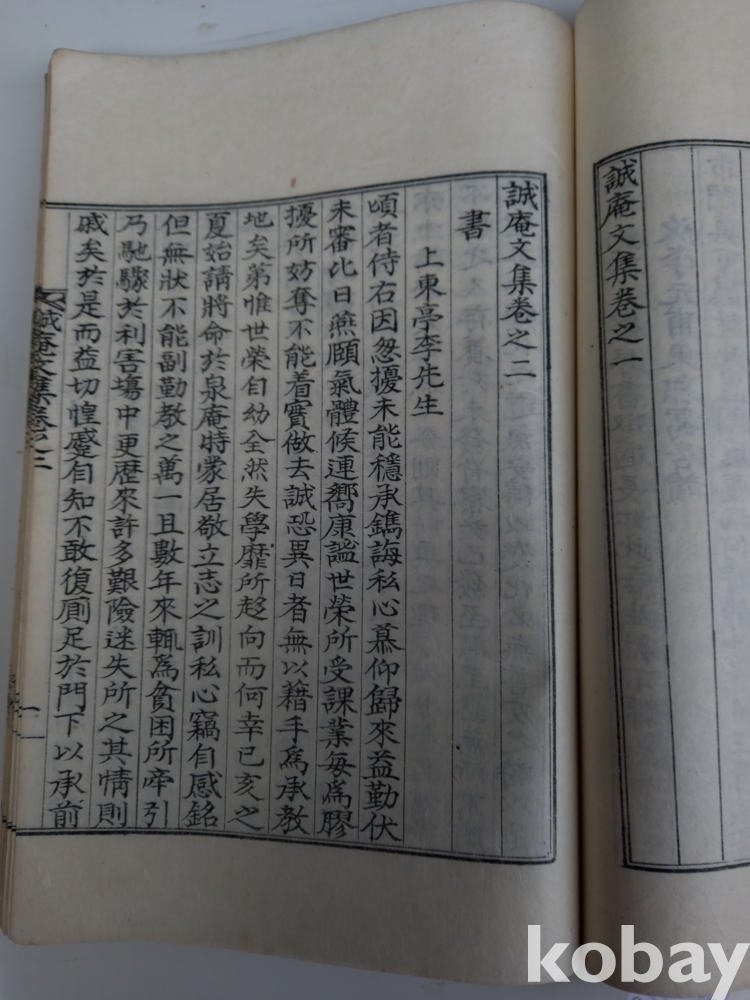 誠庵文集卷之一
誠庵文集卷之二
書
上東亭李先生
頃者侍右因忽擾未能穩承鐫誨私心慕仰歸來益勤伏
未審比日燕頤氣體候連嚮康謐世榮所受課業每爲膠
擾所妨奪不能着實做去誠恐異日者無以藉手爲承教
地矣第惟世榮自幼全然失學靡所趍向而何幸己亥之
夏始請將命於泉庵時蒙居敬立志之訓私心竊自感銘
但無狀不能副勤教之萬一且數年來輒爲貧困所牽引
乃馳騾於利害塲中更歷來許多艱險迷失所之其情則
戚矣於是而益切惶蹙自知不敢復厠足於門下以承前
誠庵文集卷之二
一
kobay